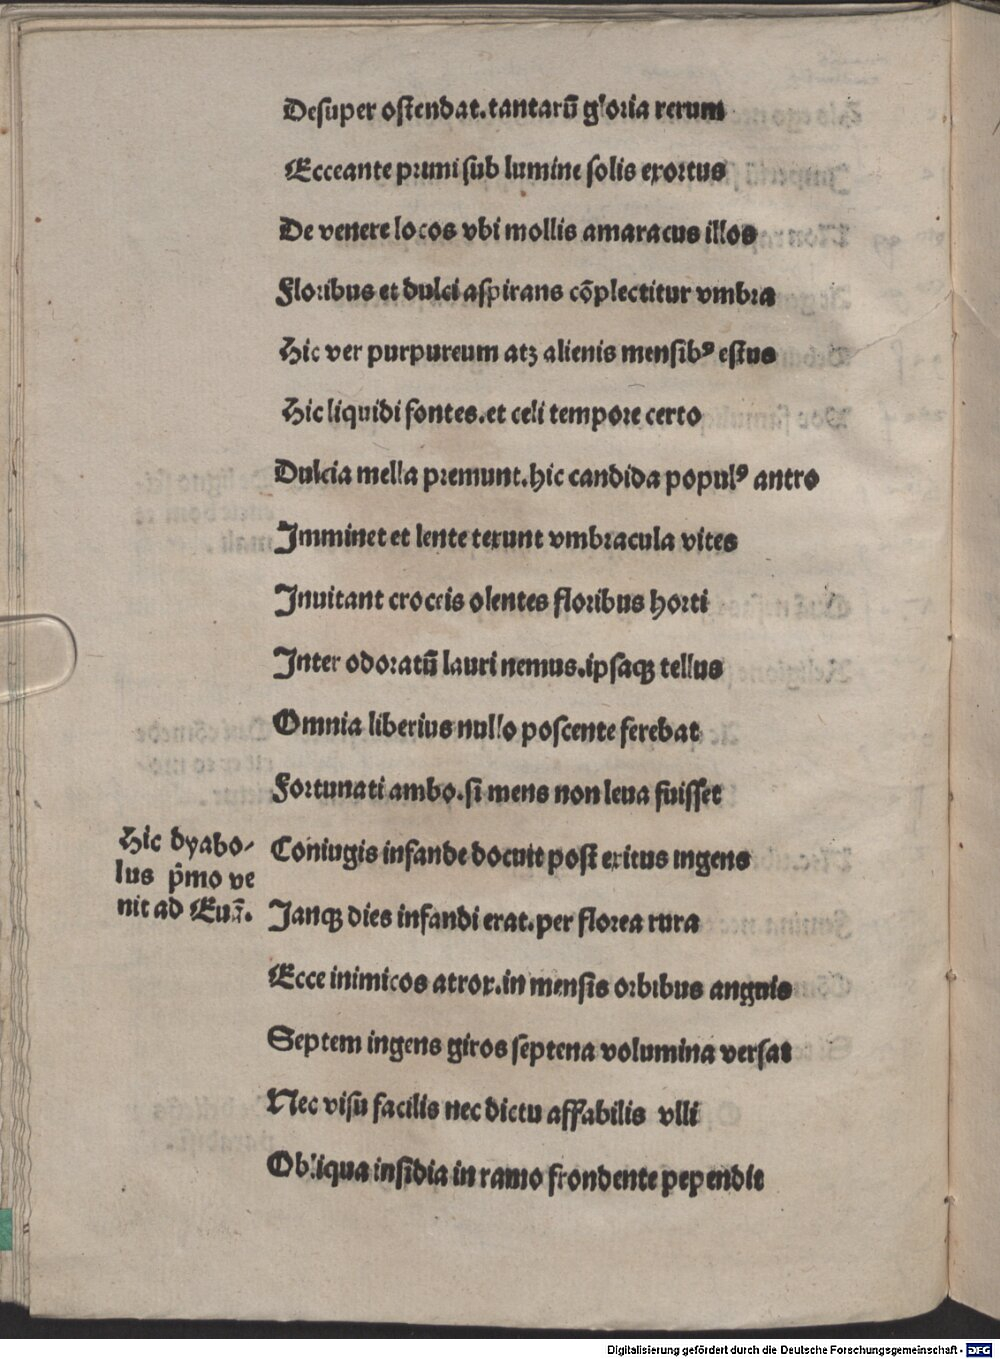 Desuper ostendat.tantarū gloria rerum
Ecceante primi sub lumine solis exortus
De venere locos vbi mollis amaracus illos
Floribus et dulci aspirans cōplectitur vmbra
Hic ver purpureum atqꝫ alienis mensibꝰ estus
Hic liquidi fontes.et celi tempore certo
Dulcia mella premunt.hic candida populꝰ antro
Imminet et lente texunt vmbracula vites
Inuitant croceis olentes floribus horti
Inter odoratū lauri nemus.ipsaqꝫ tellus
Omnia liberius nullo poscente ferebat
Fortunati ambo.si mens non leua fuisset
Coniugis infande docuit post exitus ingens
Hic dyabo-
lus p̄mo ve
nit ad Euā.
Janqꝫ dies infandi erat.per florea rura
Ecce inimicos atrox.in mensis orbibus anguis
Septem ingens giros septena volumina versat
Nec visu facilis nec dictu affabilis vlli
Obliqua insidia in ramo frondente pependit
Digitalisierung gefördert durch die Deutsche Forschungsgemeinschaft - DFG